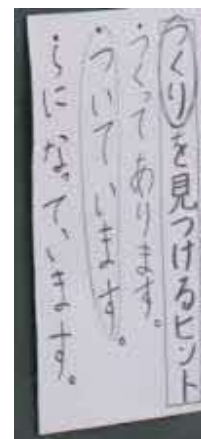 つくりを見つけるヒント
・つくってあります。
・ついています。
・らになっています。